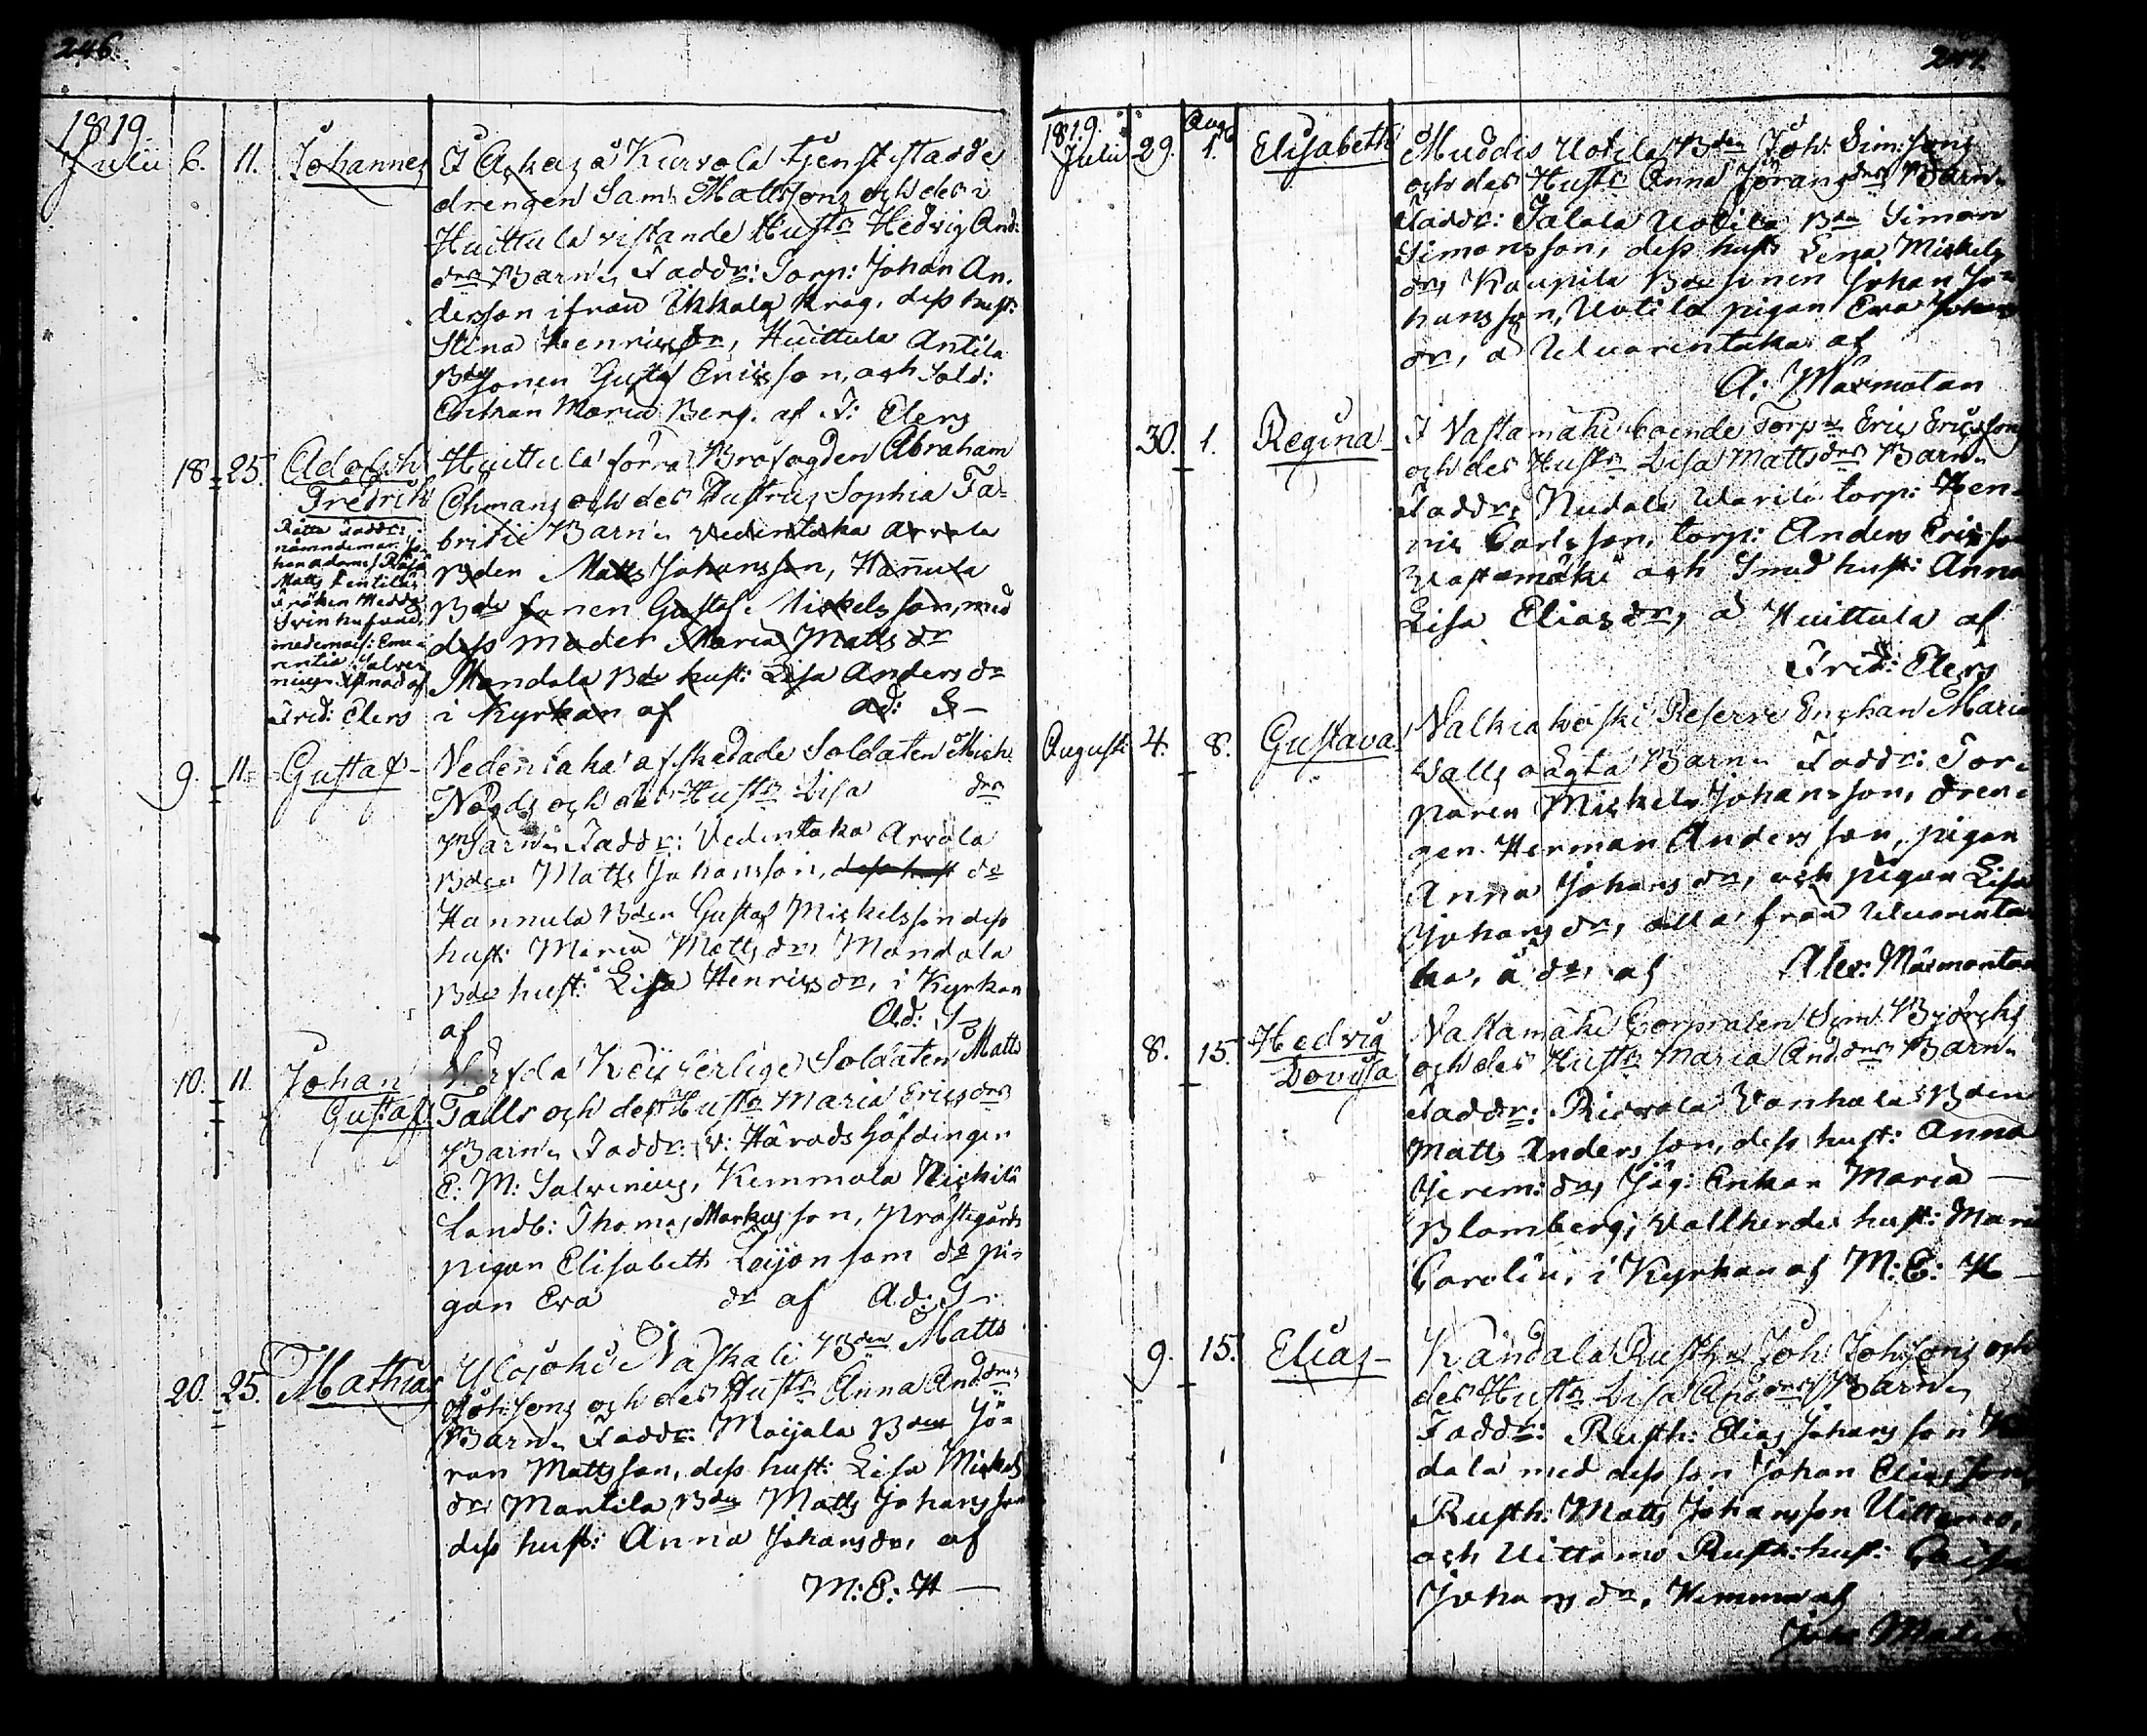 246.
1819
Julii 6. 11. Johannes I Ackas å Kurvola tjenstgiörande
drengen Sam: Mattssons och des i
Huittula vistande Hustr Hedvig And:
drs Barn. Faddr: Torp: Johan An-
dersson ifrån Ekkala Krog, dess hust:
Stina Henricsdr, Huittula Antila
Bdesonen Gustaf Ericsson, och Sold:
Enkan Maria Berg. af F: Elers
18. 25. Adolph Huittula förra Brofogden Abraham
Fredrik Öhmans och des Hustrus Sophia Fa-
Rätta Faddr: britii Barn. Vedentaka Arvola
nämndeman Jo-
han Adams
Matts Pentilä
Fröken Hedda
Svinhufvud,
mademois: Eme-
rentia Salve-
nius
Frid: Elers
Bden Matts Johansson, Hannula
Bde sonen Gustaf Mickelsson, med
dess moder Maria Matts dr
Mandola Bde hust: Lisa Anders dr
i Kyrkan af Ad: G—
9. 11. Gustaf Vedentaka afskedade Soldaten Mich:
Nords och des Hustr Lisa drs
Barn. Faddr: Vedentaka Arvola
Bden Matts Johansson, dess hust do
Hannula Bden Gustaf Mickelsson dess
hust: Maria Matts dr, Mandola
Bde hust: Lisa Henrics dr, i Kyrkan
af Ad: G
10. 11. Johan Keijserlige Soldaten Matts
Gustaf Falls och des Hustr Maria Ericsdrs
Barn. Faddr: v: Häradshöfdingen
E: M: Salvenius, Kemmola Nickilä
Landb: Thomas Markusson, Prästgårds
pigan Elisabeth Loijon som do pi-
gan Eva dr af Ad: G—
20. 25. Mathias Ylojoki Naskali Bden Matts
Joh:sons och des Hustr Anna And:drs
Barn. Faddr: Maijala Bden Jö-
ran Mattsson, dess hust: Lisa Mickels
dr, Mantila Bde Matts Johansson
dess hust: Anna Johansdr, af
M: E: H —
247.
1819. Aug
Julii 29. 1. Elisabeth Muddis Uotila Bden Joh: Sim:sons
och des Hustr Anna Jörans drs Barn.
Faddr: Jalala Uotila Bde Simon
Simonsson, dess hust Lena Mickels
dr, Kaupila Bdesonen Johan Jo-
hansson, Uotila pigan Eva Johans
dr, å Uluarentaka af
A: Marmotan
30. 1. Regina I Vastamäki boende Torpn Eric Ericssons
och des Hustr Lisa Mattsdrs Barn.
Faddr: torp: Hen-
ric Carlsson, torp: Anders Ericsson
Vastamäki och Smed hust: Anna
Lisa Eliasdr, å Huittula af
Frid: Elers
Augusti 4. 8. Gustava Valkiakoski Reserve Enckan Maria
Valls oägta Barn. Faddr: Tor-
paren Mickels Johansson, dren-
gen Herman Andersson, pigan
Anna Johans dr, och pigan Lisa
Johans dr, alla från Uluarenta-
ka, å do, af Alex: Marmontan
8. 15. Hedvig Vastamäki Corpralen Sim: Björcks
Lovisa och des Hustr Maria And:drs Barn.
Faddr: Rivvola Vanhala Bden
Matts Andersson, dess hust: Anna
Jerem: dr, Jäg: Enkan Maria —
Blomberg, Vallherdes hust: Maria
Carolin, i Kyrkan af M: E: H —
9. 15. Elias Kändala Rusthn Joh: Joh:sons och
des Hustr Lisa And:drs Barn.
Faddr: Rusth: Elias Johansson Kän-
dala med dess son Johan Eliasson,
Rusth: Matts Johansson Uittamo,
och Uittamo Rusth: hust:
Johans dr, Hemma af